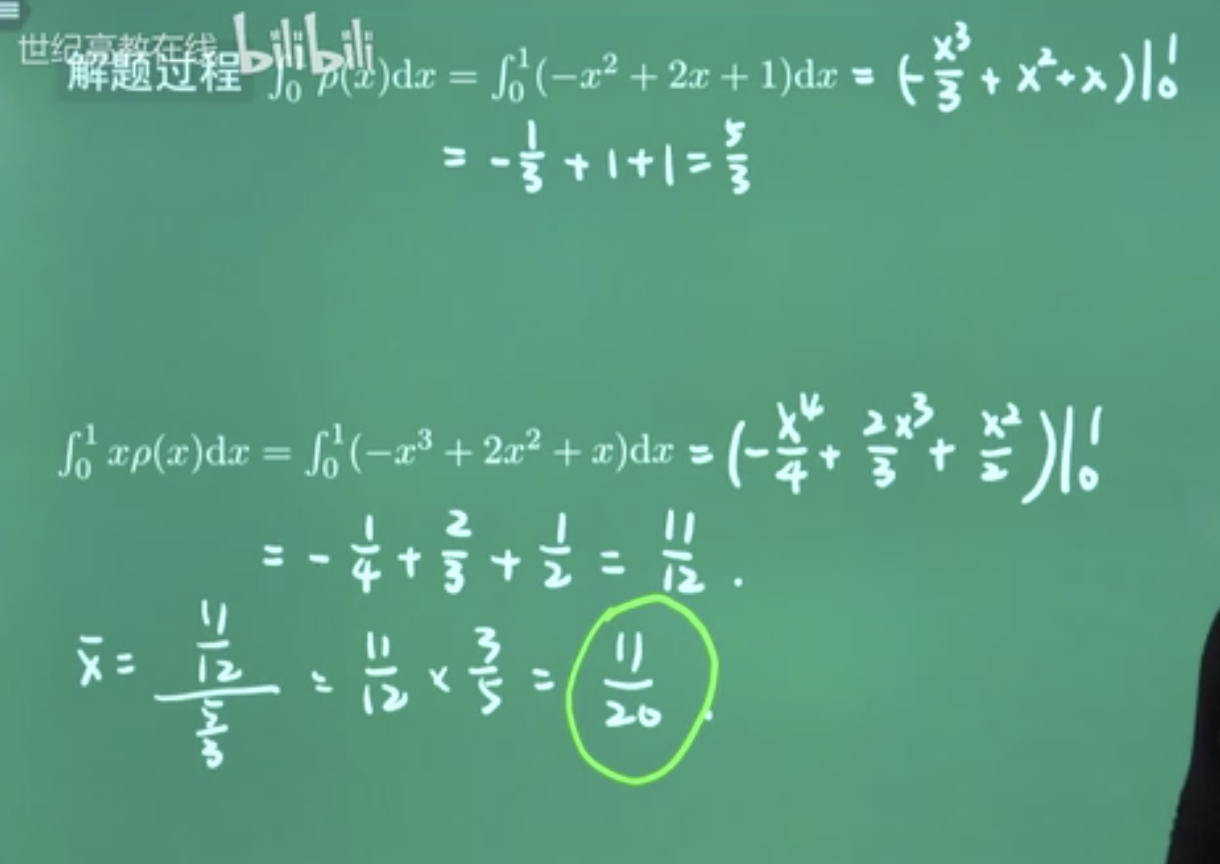 世纪高教在线 bilibili
解题过程 ∫₀¹ ρ(x)dx = ∫₀¹(−x² + 2x + 1)dx = (-x³/3 + x² + x)|₀¹
= -1/3 + 1 + 1 = 5/3
∫₀¹ xρ(x)dx = ∫₀¹(−x³ + 2x² + x)dx = (-x⁴/4 + 2x³/3 + x²/2)|₀¹
= -1/4 + 2/3 + 1/2 = 11/12 .
x̄ = (11/12)/(5/3) = 11/12 × 3/5 = 11/20 .